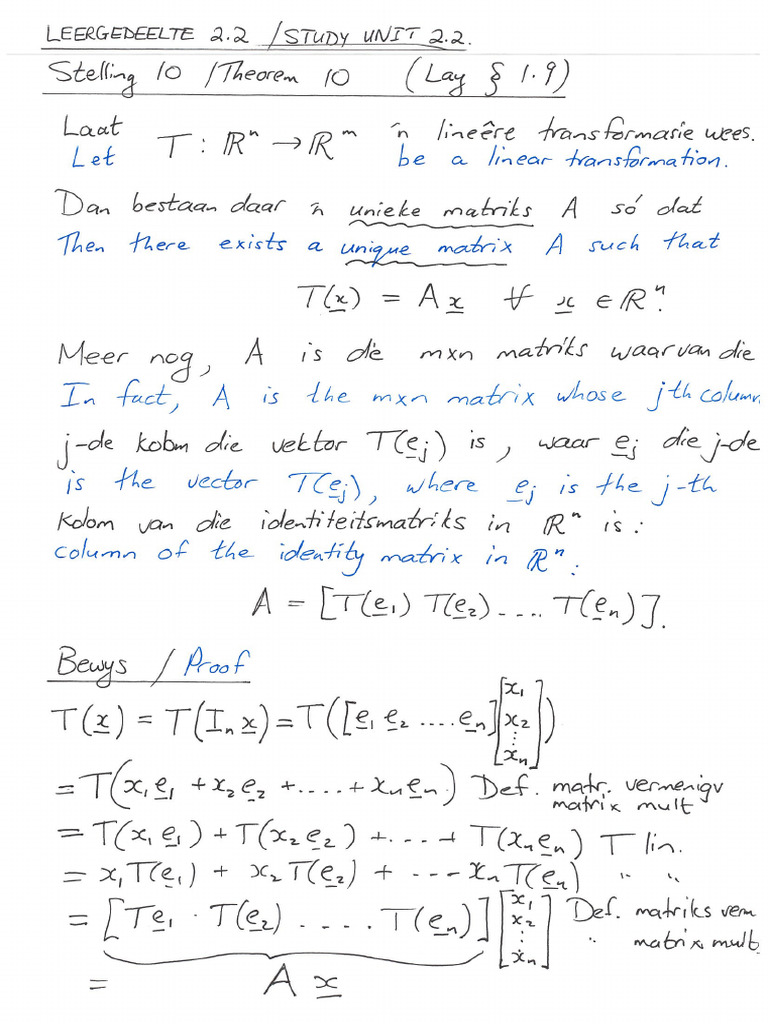 LEERGEDEELTE 2.2 / STUDY UNIT 2.2.
Stelling 10 / Theorem 10 (Lay § 1.9)
Laat T : ℝⁿ → ℝᵐ 'n lineêre transformasie wees.
Let be a linear transformation.
Dan bestaan daar 'n unieke matriks A só dat
Then there exists a unique matrix A such that
T(x) = Ax ∀ x ∈ ℝⁿ.
Meer nog, A is die mxn matriks waarvan die
In fact, A is the mxn matrix whose jth column
j-de kolom die vektor T(eⱼ) is, waar eⱼ die j-de
is the vector T(eⱼ), where eⱼ is the j-th
kolom van die identiteitsmatriks in ℝⁿ is:
column of the identity matrix in ℝⁿ:
A = [T(e₁) T(e₂) .... T(eₙ)].
Bewys / Proof
T(x) = T(Iₙx) = T([e₁ e₂ .... eₙ][x₁ x₂ ⋮ xₙ])
= T(x₁e₁ + x₂e₂ + .... + xₙeₙ) Def. matr. vermenigv
matrix mult
= T(x₁e₁) + T(x₂e₂) + ... + T(xₙeₙ) T lin.
= x₁T(e₁) + x₂T(e₂) + --- xₙT(eₙ) " "
= [Te₁ · T(e₂) . ... T(eₙ)][x₁ x₂ ⋮ xₙ] Def. matriks verm
" matrix mult.
= A x